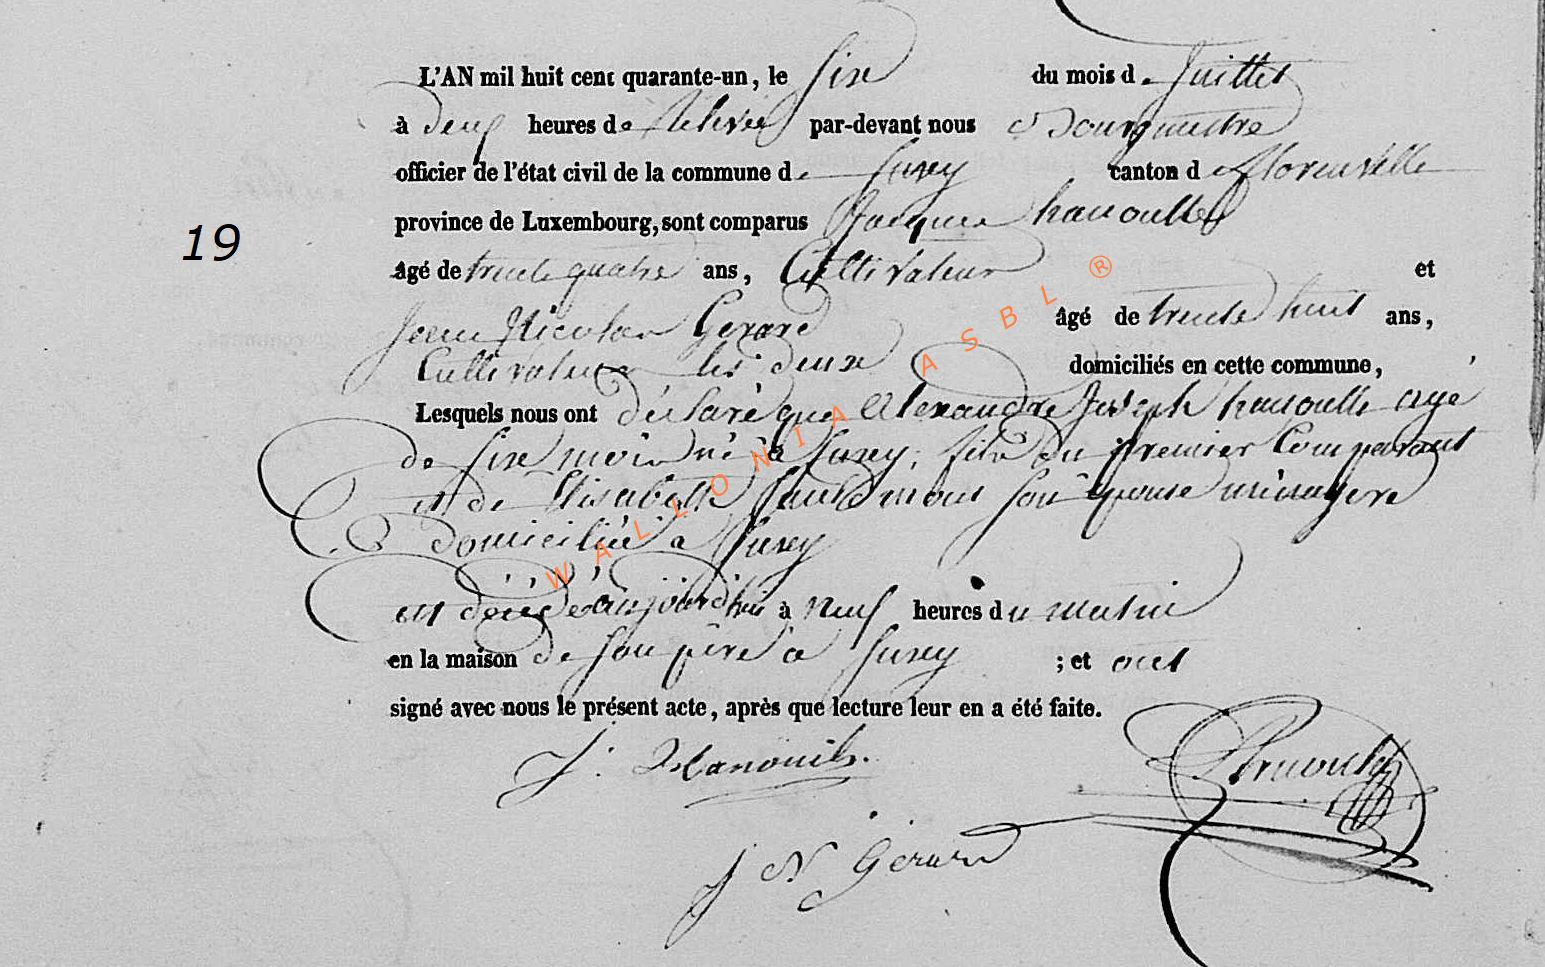 L'AN mil huit cent quarante-un, le six du mois de Juillet
à deux heures de relevée par-devant nous Bourgmestre
officier de l'état civil de la commune de Suxy canton de florenville
province de Luxembourg, sont comparus Jacques hanoulle
19
âgé de trente quatre ans, Cultivateur et
Jean Nicolas Gerard âgé de trente huit ans,
Cultivateur les deux domiciliés en cette commune,
Lesquels nous ont déclaré que Alexandre Joseph hanoulle agé
de six mois né à Suxy, fils du premier Comparant
et de Elisabeth son épouse ménagère
domiciliée à Suxy
est décédé aujourd'hui à neuf heures du matin
en la maison de son père à Suxy ; et ont
signé avec nous le présent acte, après que lecture leur en a été faite.
J.
J N Gérard
WALLONIA ASBL ®